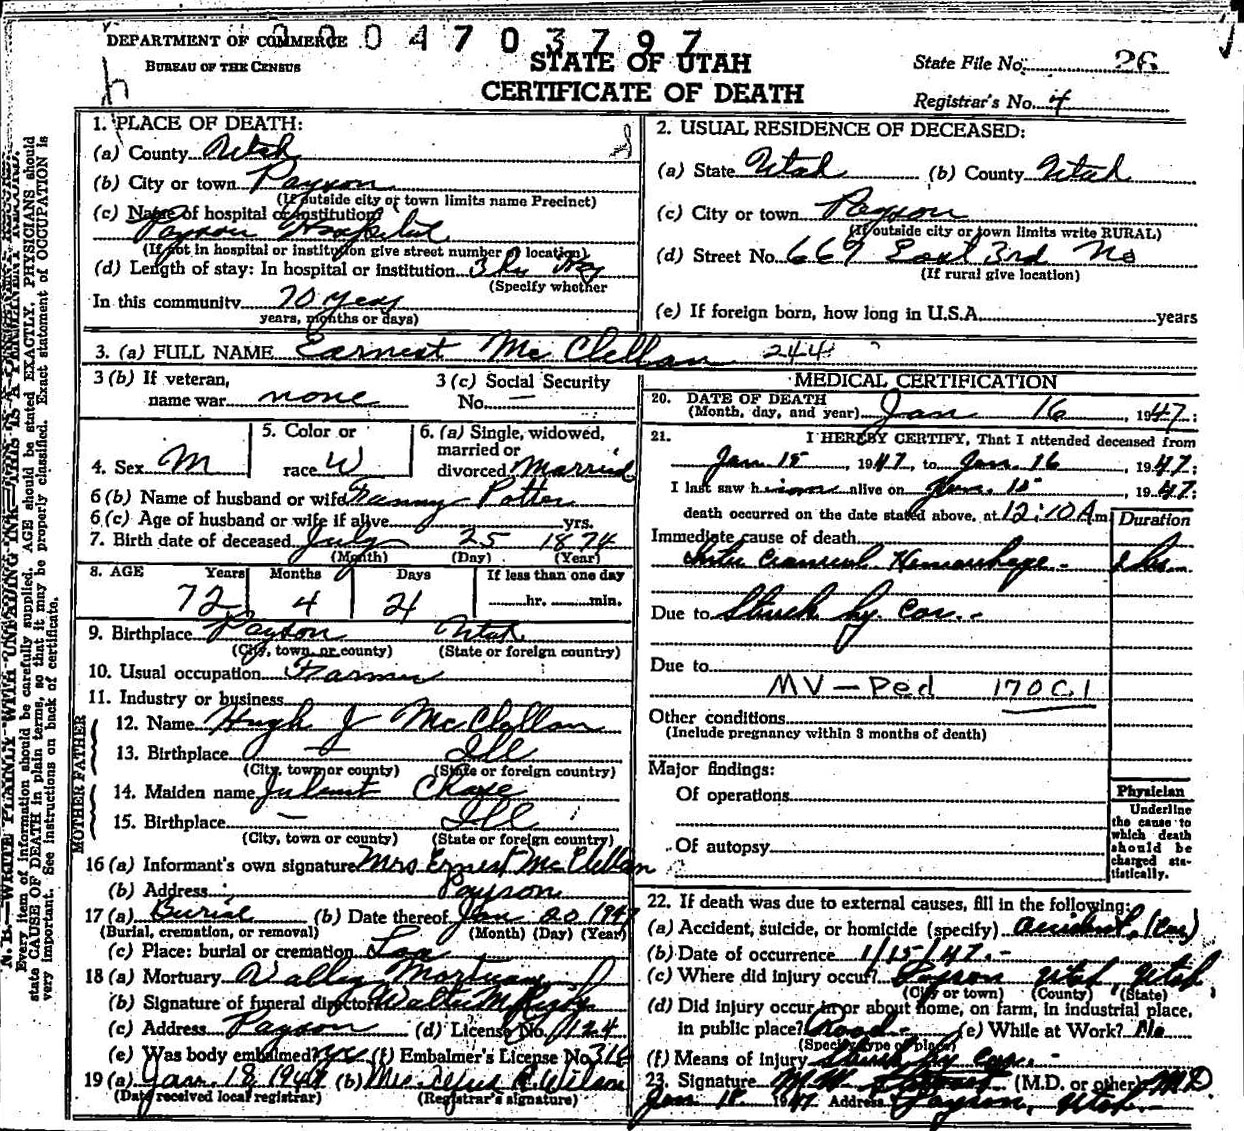 DEPARTMENT OF COMMERCE
BUREAU OF THE CENSUS
04703797
STATE OF UTAH
CERTIFICATE OF DEATH
State File No. 26
Registrar's No. 4
N. B.—WRITE PLAINLY WITH UNFADING INK—THIS IS A PERMANENT RECORD.
Every item of information should be carefully supplied. AGE should be stated EXACTLY. PHYSICIANS should
state CAUSE OF DEATH in plain terms, so that it may be properly classified. Exact statement of OCCUPATION is
very important. See instructions on back of certificate.
1. PLACE OF DEATH:
(a) County Utah
(b) City or town Payson
(If outside city or town limits name Precinct)
(c) Name of hospital or institution
Payson Hospital
(If not in hospital or institution give street number or location)
(d) Length of stay: In hospital or institution 3 hr
(Specify whether
In this community 70 years
years, months or days)
2. USUAL RESIDENCE OF DECEASED:
(a) State Utah (b) County Utah
(c) City or town Payson
(If outside city or town limits write RURAL)
(d) Street No. 669 East 3rd No
(If rural give location)
(e) If foreign born, how long in U.S.A. years
3. (a) FULL NAME Earnest Mc Clellan 244
3 (b) If veteran,
name war none
3 (c) Social Security
No. —
4. Sex M
5. Color or
race W
6. (a) Single, widowed,
married or
divorced Married
6 (b) Name of husband or wife Fanny Potter
6 (c) Age of husband or wife if alive yrs.
7. Birth date of deceased July 25 1874
(Month) (Day) (Year)
8. AGE Years Months Days If less than one day
72 4 21 hr. min.
9. Birthplace Payson Utah
(City, town or county) (State or foreign country)
10. Usual occupation Farmer
11. Industry or business
FATHER
12. Name Hugh J McClellan
13. Birthplace — Ill
(City, town or county) (State or foreign country)
MOTHER
14. Maiden name Chase
15. Birthplace — Ill
(City, town or county) (State or foreign country)
16 (a) Informant's own signature Mrs Ernest McClellan
(b) Address Payson
17 (a) Burial (b) Date thereof Jan 20 1947
(Burial, cremation, or removal) (Month) (Day) (Year)
(c) Place: burial or cremation
18 (a) Mortuary Valley Mortuary
(b) Signature of funeral director
(c) Address Payson (d) License No. 1124
(e) Was body embalmed? yes (f) Embalmer's License No. 316
19 (a) Jan. 18 1947 (b) Wilson
(Date received local registrar) (Registrar's signature)
MEDICAL CERTIFICATION
20. DATE OF DEATH
(Month, day, and year) Jan 16, 1947:
21. I HEREBY CERTIFY, That I attended deceased from
Jan 15, 1947, to Jan. 16, 1947:
I last saw him alive on Jan. 15, 1947:
death occurred on the date stated above, at 12:10 A m
Duration
Immediate cause of death
Intra Cranial Hemorrhage - hrs
Due to Struck by Car.-
Due to
MV—Ped 170C.1
Other conditions
(Include pregnancy within 3 months of death)
Major findings:
Of operations
Of autopsy
Physician
Underline
the cause to
which death
should be
charged sta-
tistically.
22. If death was due to external causes, fill in the following:
(a) Accident, suicide, or homicide (specify) accident, (car)
(b) Date of occurrence 1/15/47.-
(c) Where did injury occur? Payson Utah, Utah
(City or town) (County) (State)
(d) Did injury occur in or about home, on farm, in industrial place,
in public place? Road - (e) While at Work? No
(Specify type of place)
(f) Means of injury Struck by Car.-
23. Signature (M.D. or other) M.D
Jan 18 1947 Address Payson, Utah.-